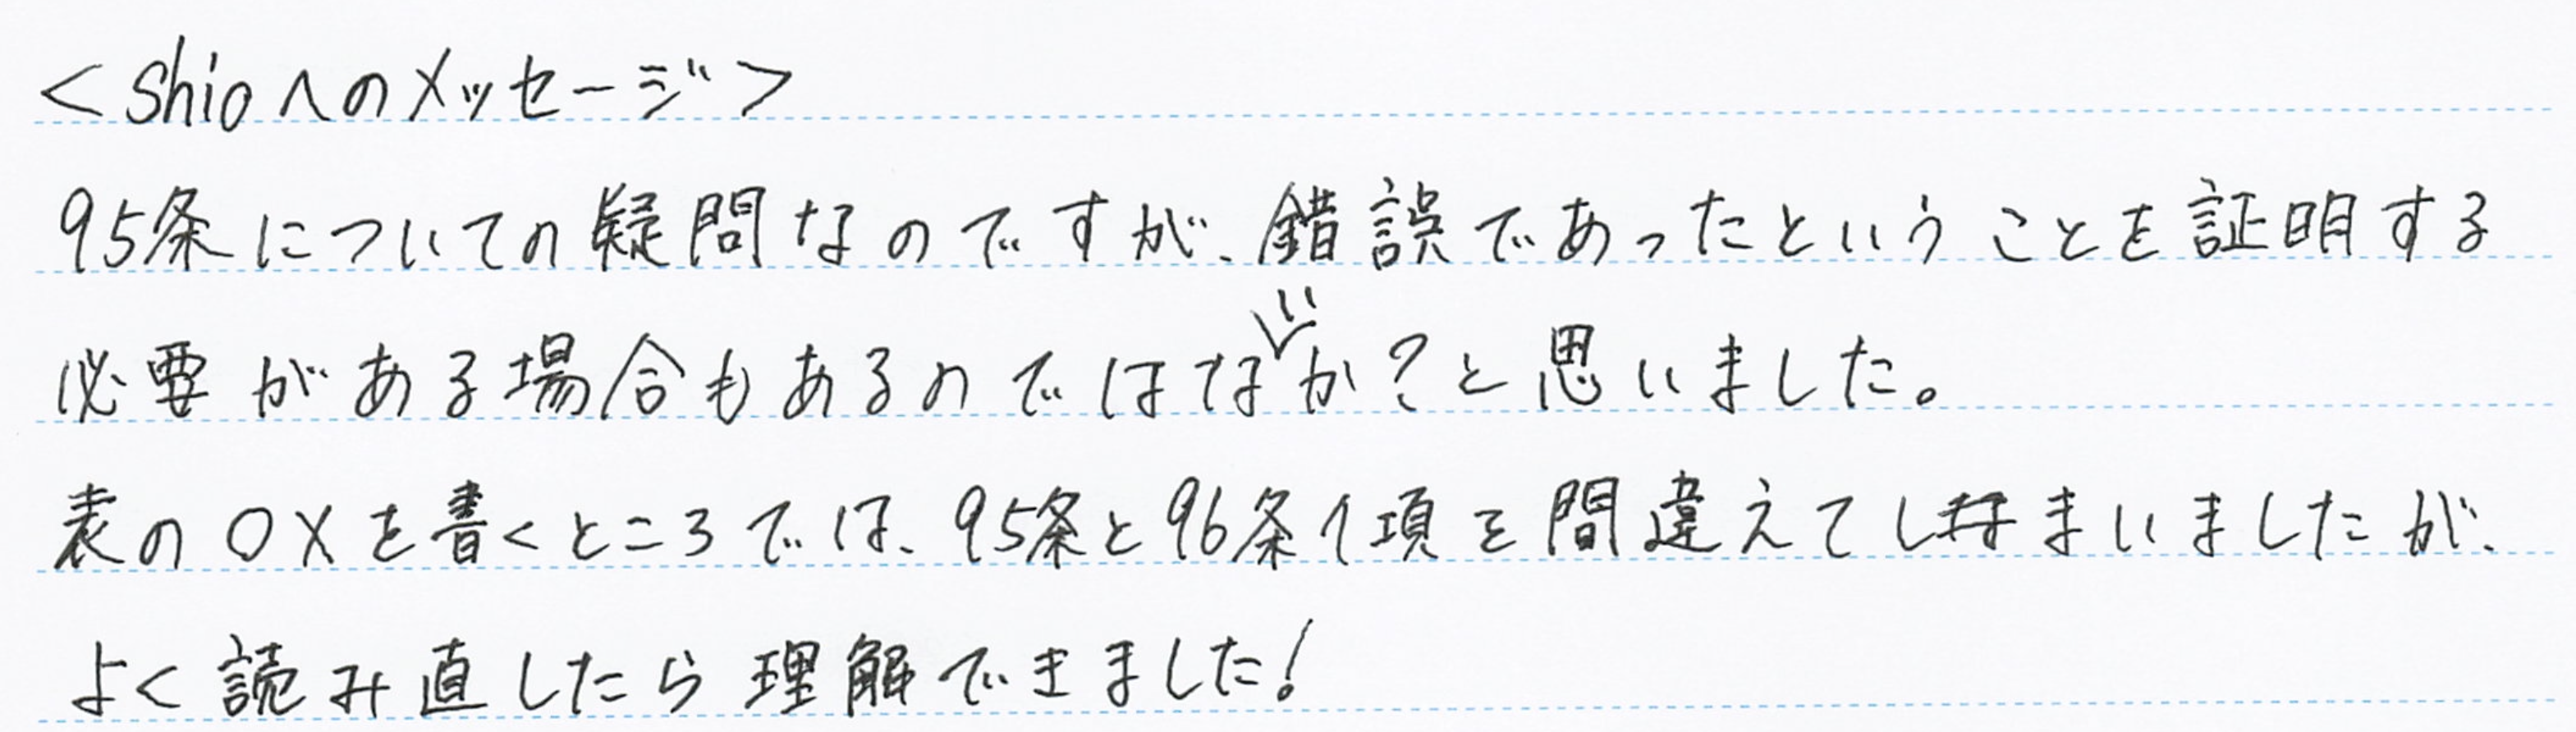 <shioへのメッセージ>
95条についての疑問なのですが、錯誤であったということを証明する
必要がある場合もあるのではないか?と思いました。
表の○×を書くところでは、95条と96条1項を間違えてしまいましたが、
よく読み直したら理解できました!